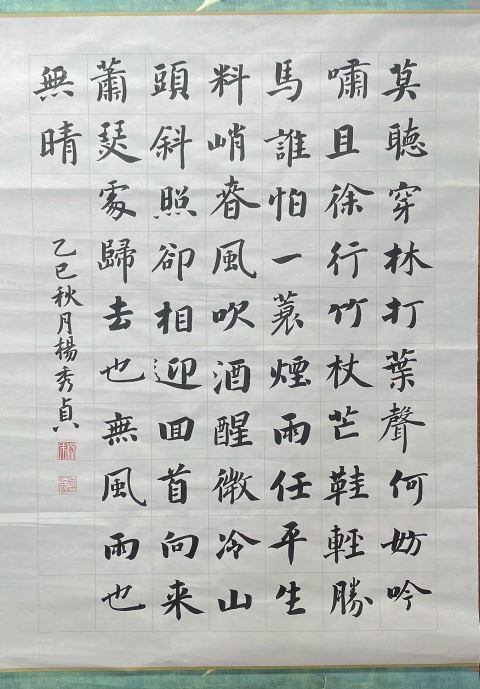 莫聽穿林打葉聲何妨吟
嘯且徐行竹杖芒鞋輕勝
馬誰怕一蓑煙雨任平生
料峭春風吹酒醒微冷山
頭斜照卻相迎回首向来
蕭瑟處歸去也無風雨也
無晴
乙巳秋月楊秀貞